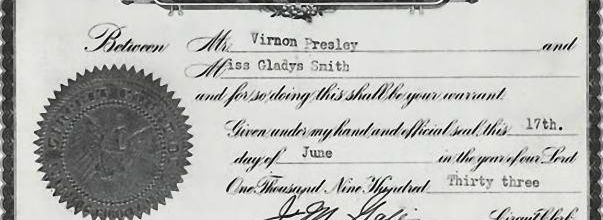 Between Mr. Virnon Presley and
Miss Gladys Smith
and for so doing this shall be your warrant.
Given under my hand and official seal, this 17th.
day of June in the year of our Lord
One Thousand Nine Hundred Thirty three
Circuit Clerk